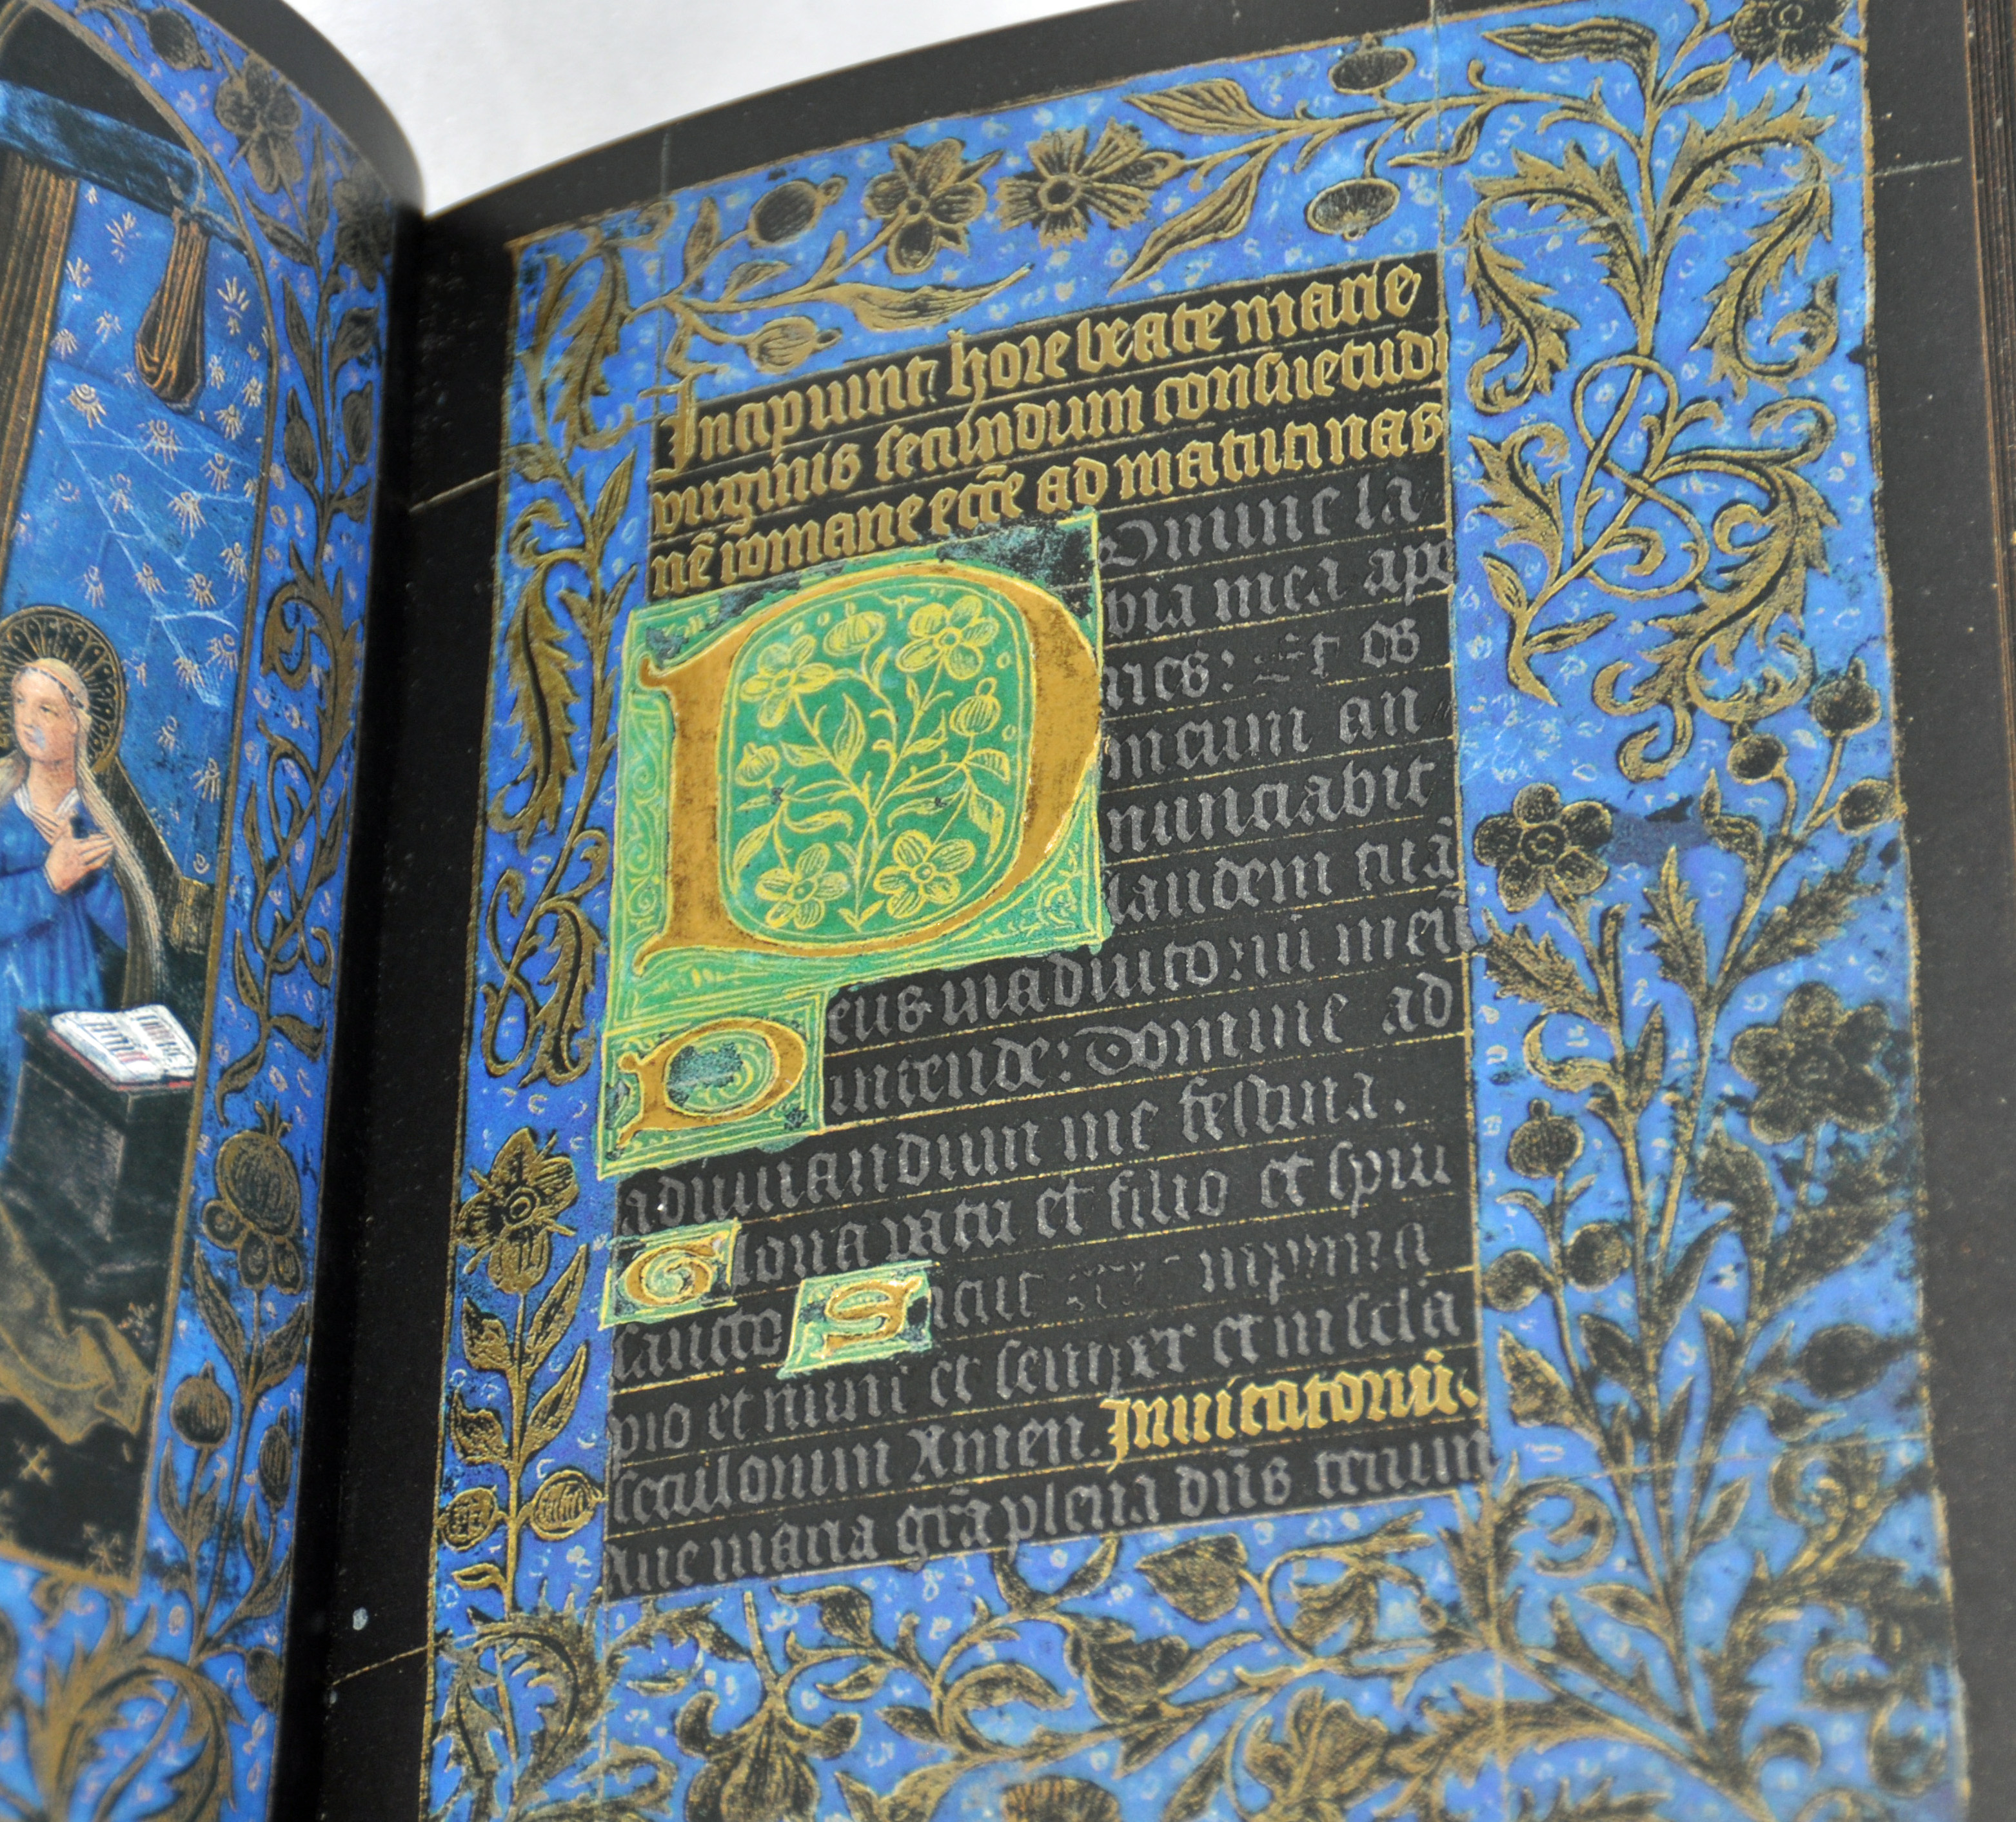 Incipiunt hore beate marie
virginis secundum consuetudi
nē romane eccē ad matutinas
Domine la
bia mea ape
ries: Et os
meum an
nunciabit
laudem tuā
Deus in adiutoriū meū
intende: Domine ad
adiuuandum me festina.
Gloria patri et filio et spiri
sancto Sicut in prima
pio et nunc et semper et in secla
seculorum Amen. Inuitatoriū.
Aue maria grā plena dn̄s tecum